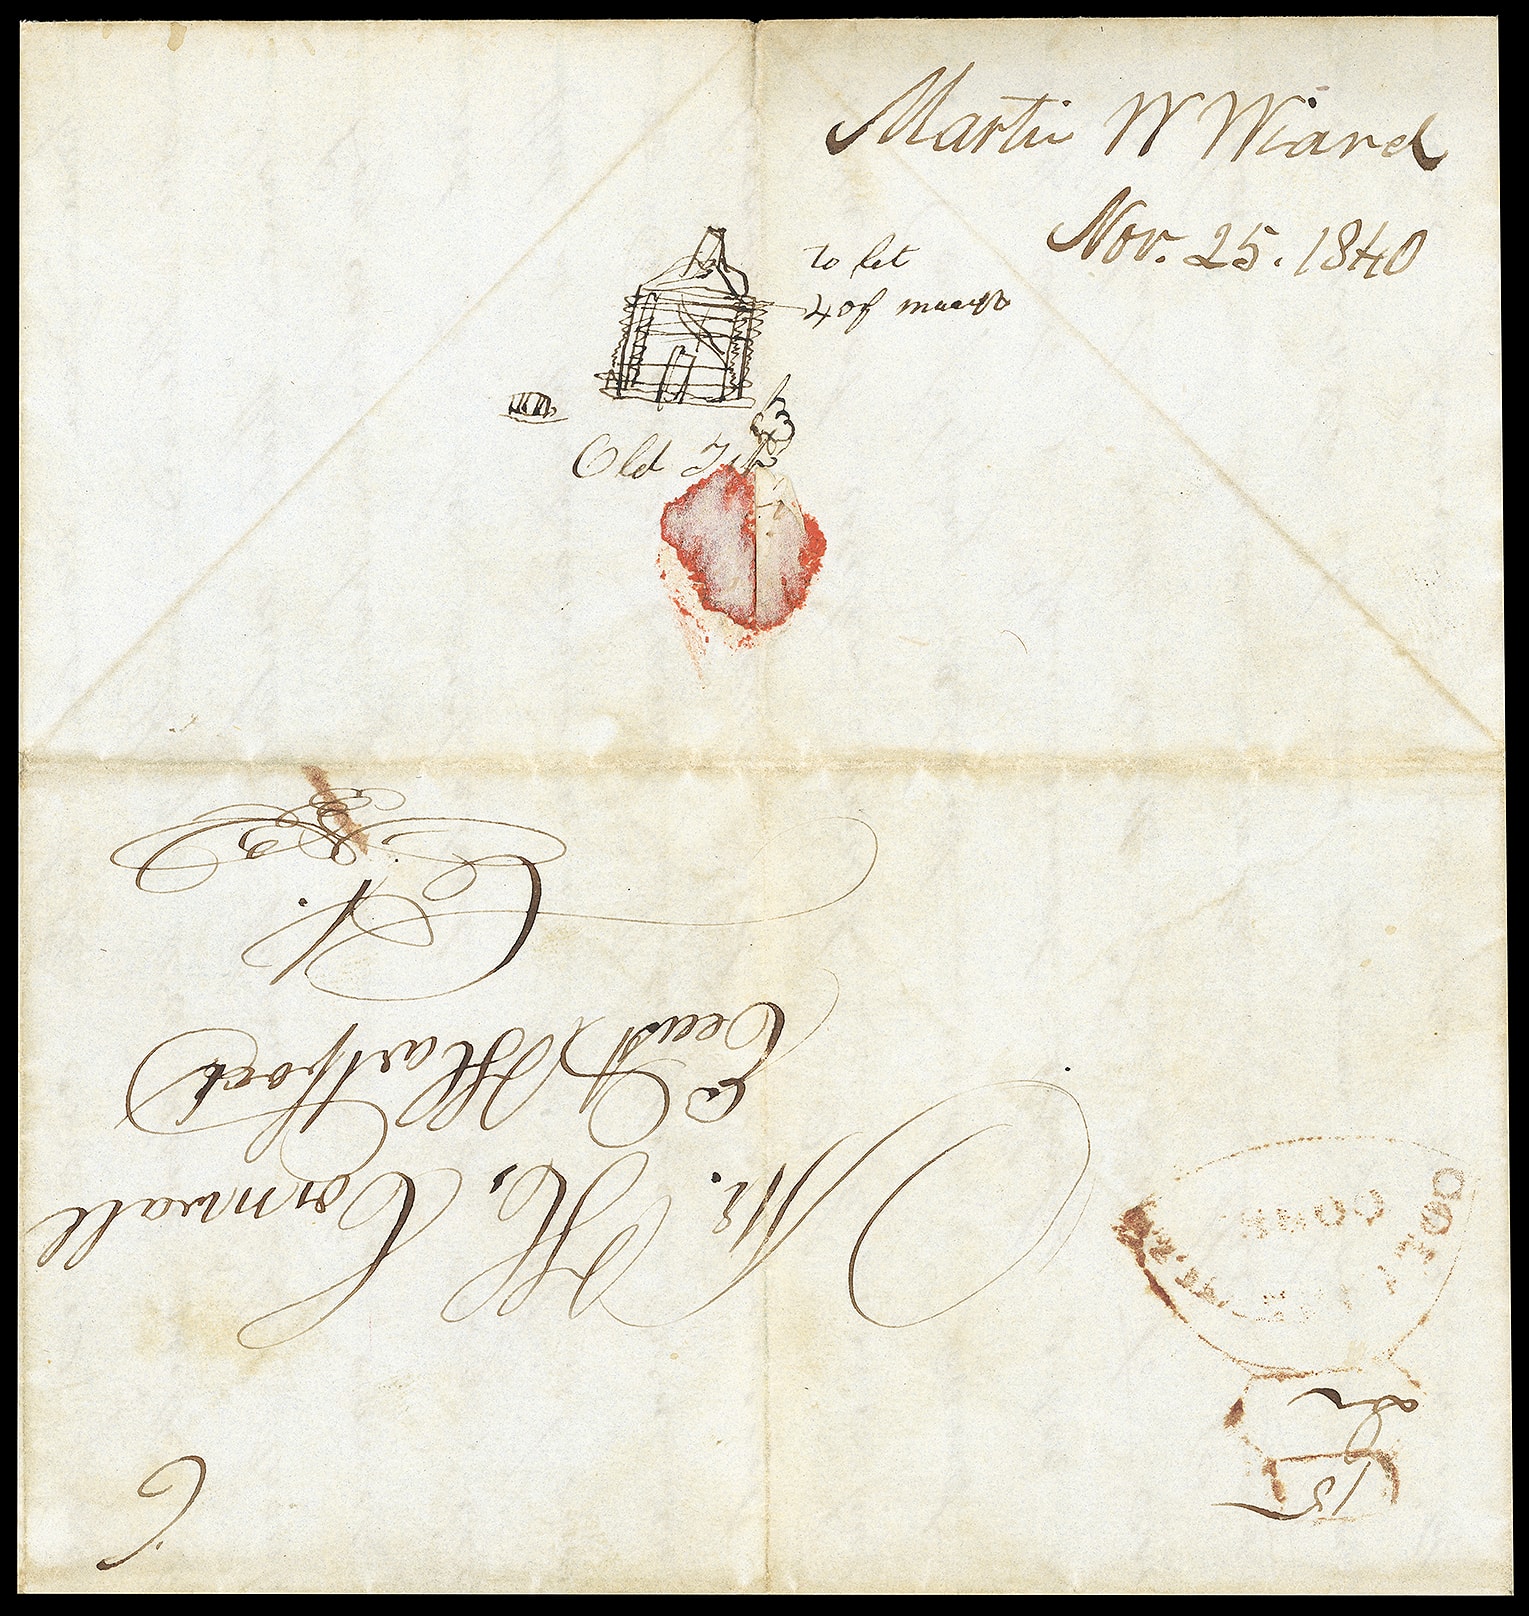 Martin W Wiard
Nov. 25. 1840
to let
4 of
Old Tip
Mr. H. Cornwall
East Hartford
Ct.
CONN.
15
6